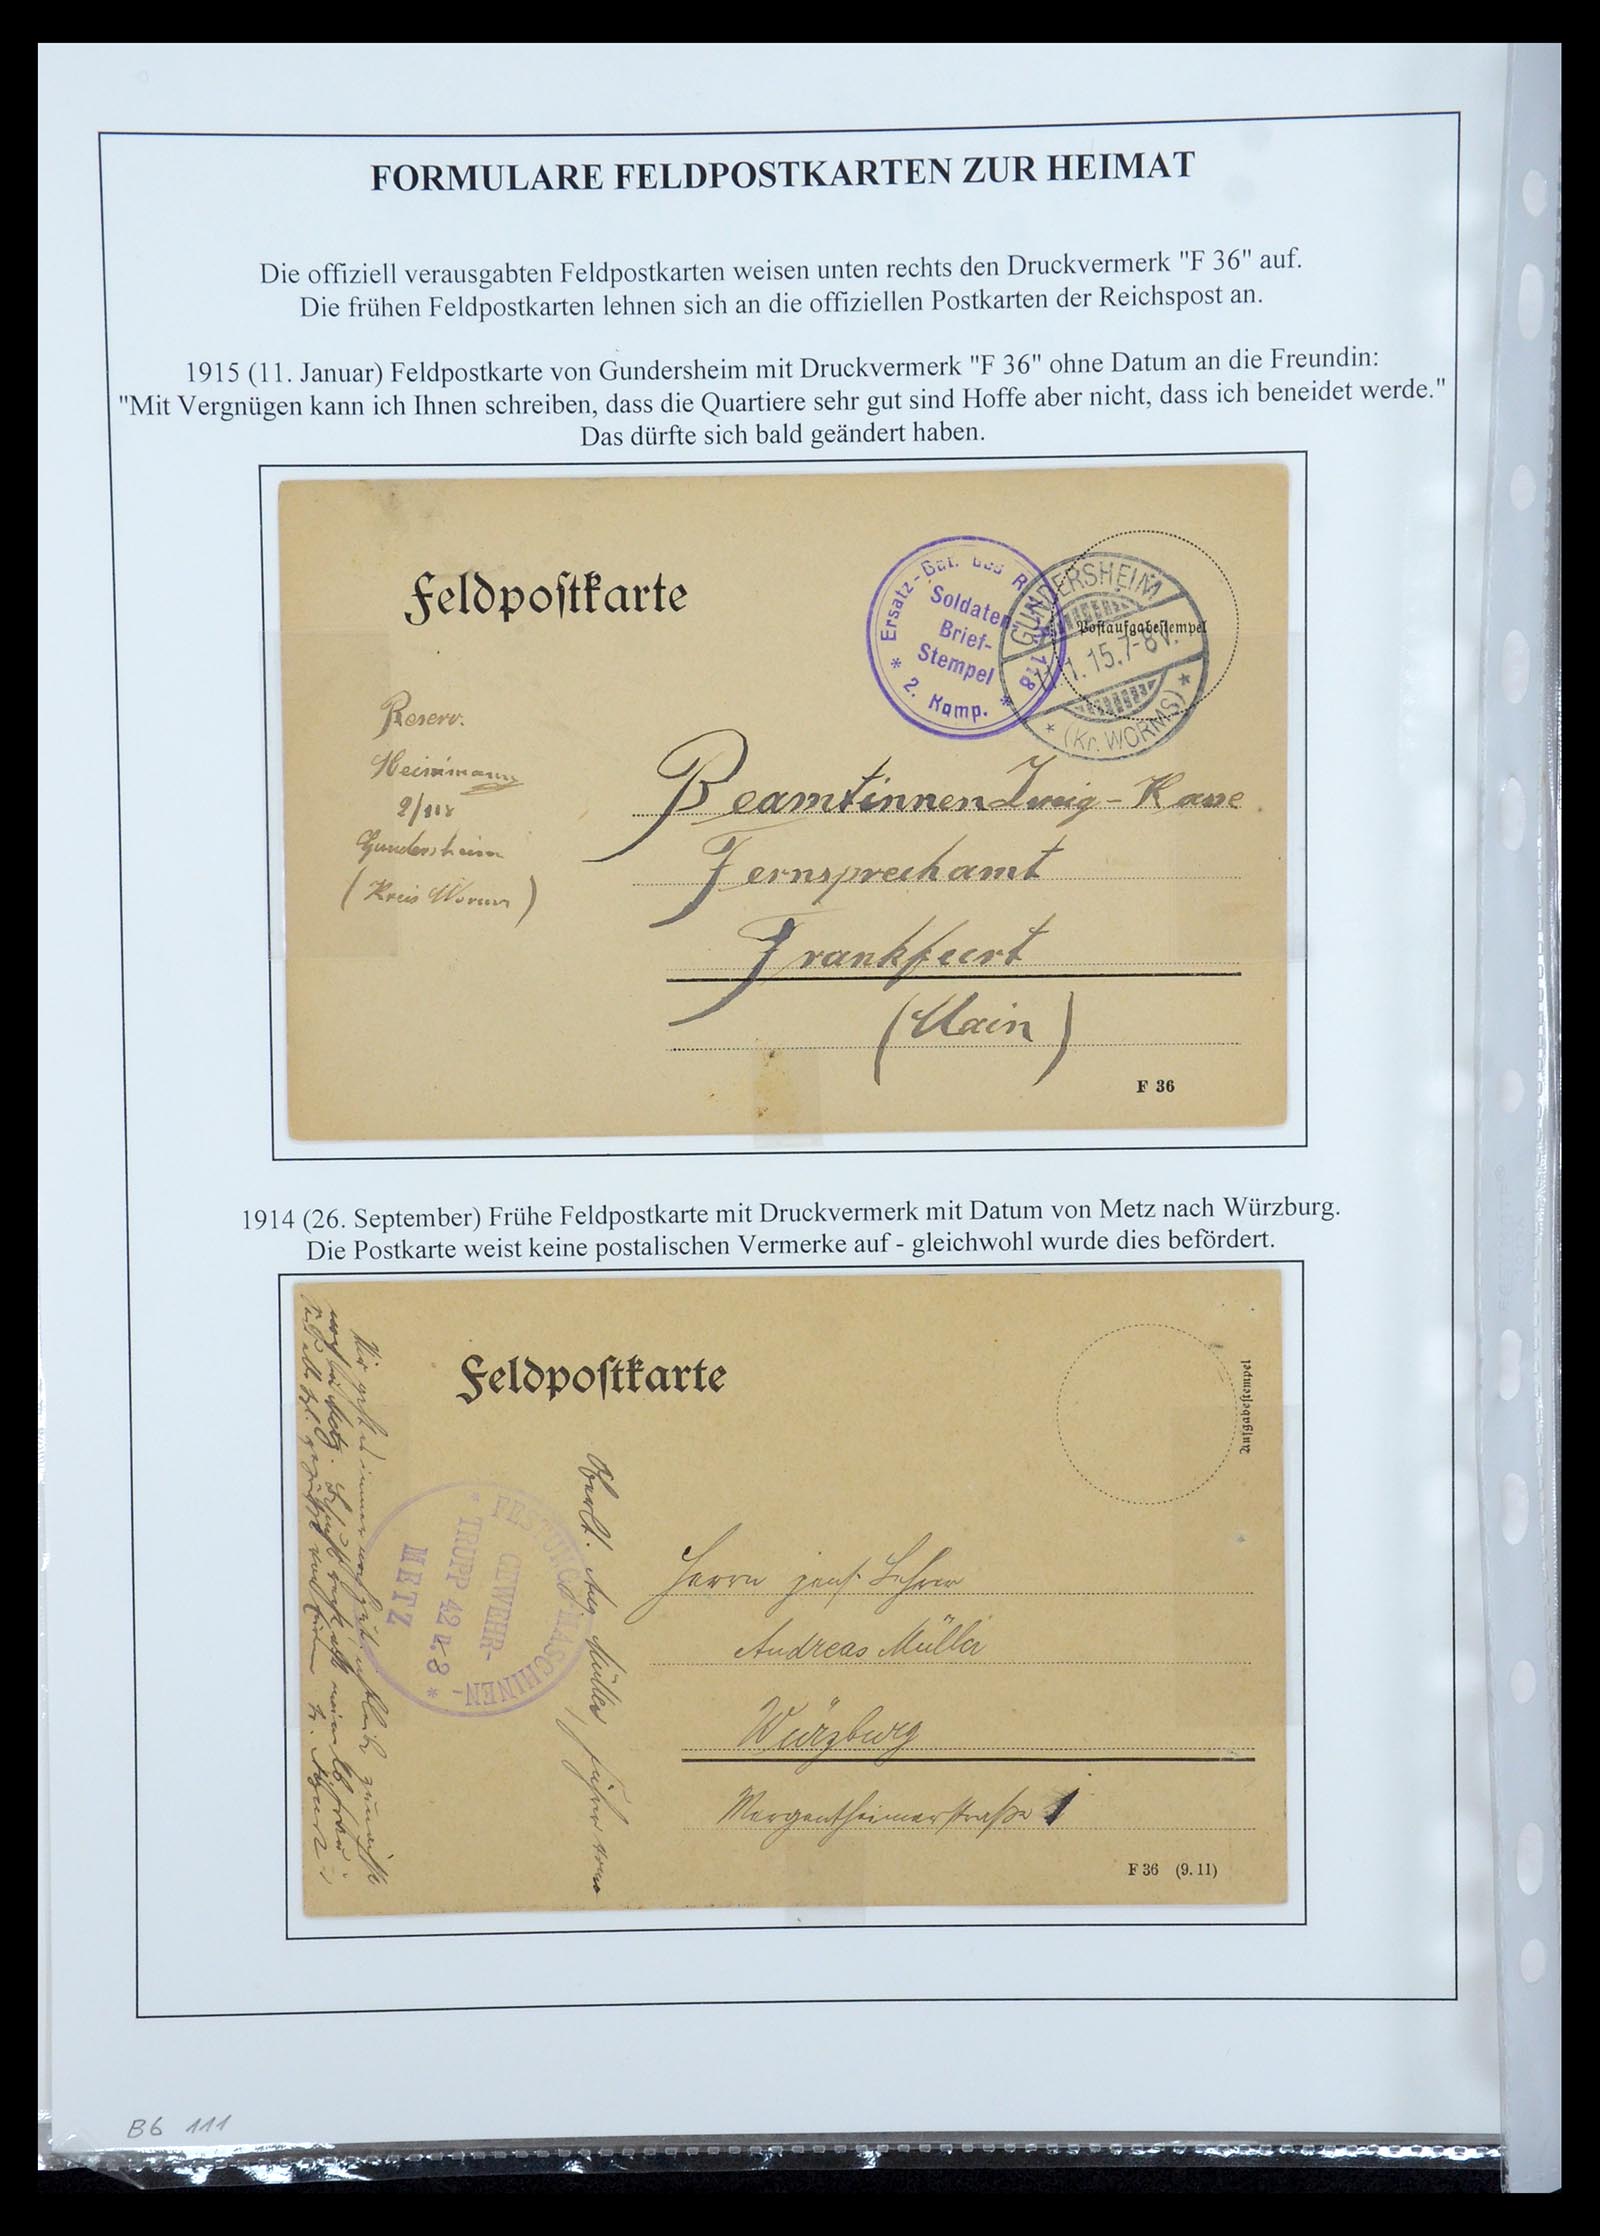 FORMULARE FELDPOSTKARTEN ZUR HEIMAT
Die offiziell verausgabten Feldpostkarten weisen unten rechts den Druckvermerk "F 36" auf.
Die frühen Feldpostkarten lehnen sich an die offiziellen Postkarten der Reichspost an.
1915 (11. Januar) Feldpostkarte von Gundersheim mit Druckvermerk "F 36" ohne Datum an die Freundin:
"Mit Vergnügen kann ich Ihnen schreiben, dass die Quartiere sehr gut sind Hoffe aber nicht, dass ich beneidet werde."
Das dürfte sich bald geändert haben.
Feldpostkarte
* Ersatz-Bat. des R. 118 *
Soldaten-
Brief-
Stempel
2. Komp.
GUNDERSHEIM
1.15.7-8V.
* (Kr. WORMS) *
Postaufgabestempel
Reserv.
Heinimann
2/118
Gundersheim
(Kreis Worms)
Beamtinnen Zweig-Kasse
Fernsprechamt
Frankfurt
(Main)
F 36
1914 (26. September) Frühe Feldpostkarte mit Druckvermerk mit Datum von Metz nach Würzburg.
Die Postkarte weist keine postalischen Vermerke auf - gleichwohl wurde dies befördert.
Feldpostkarte
Aufgabestempel
* FESTUNGS-MASCHINEN- *
GEWEHR-
TRUPP 42 u. 3
METZ
Oberlt. Aug. Müller
Herrn Lehrer
Andreas Müller
Würzburg
Mergentheimerstraße 1
F 36 (9. 11)
B6 111